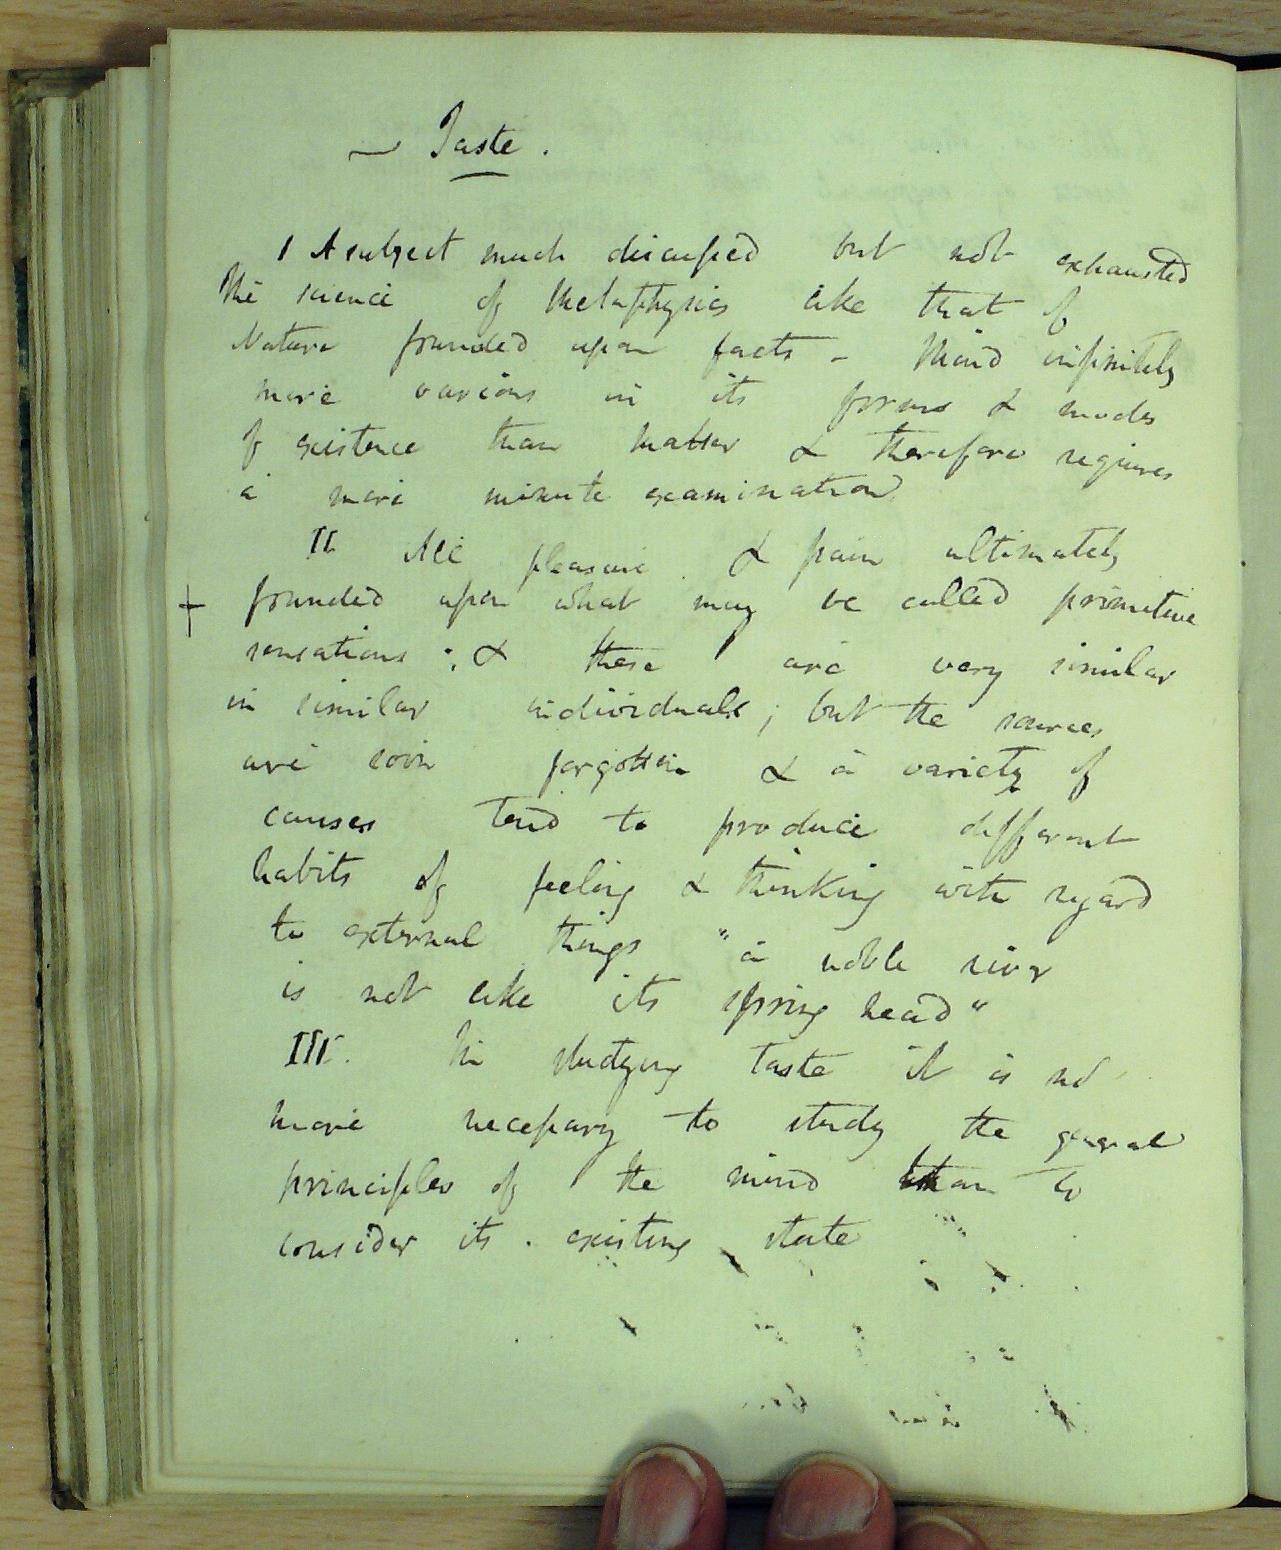 — Taste.
I A subject much discussed but not exhausted
The science of Metaphysics like that of
Nature founded upon facts - Mind infinitely
more various in its forms & modes
of existence than matter & therefore requires
a more minute examination
II All pleasure & pain ultimately
+ founded upon what may be called primitive
sensations; & these are very similar
in similar individuals; but the sources
are soon forgotten & a variety of
causes tend to produce different
habits of feeling & thinking with regard
to external things "a noble river
is not like its spring head"
III. In studying taste it is not
more necessary to study the general
principles of the mind than to
consider its existing state